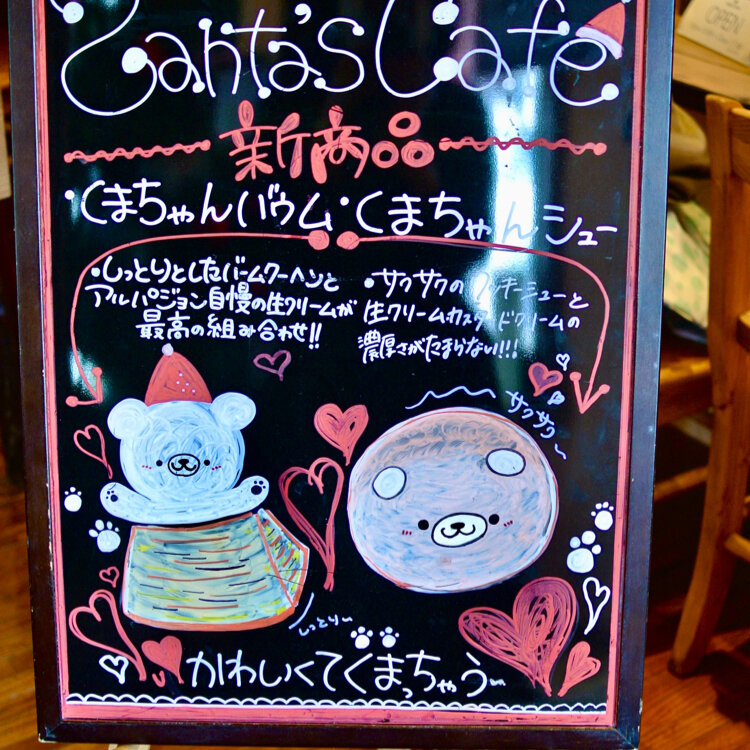 Santa's Cafe
新商品
・くまちゃんバウム・くまちゃんシュー
・しっとりとしたバームクーヘンと
アルパジョン自慢の生クリームが
最高の組み合わせ!!
・サクサクのクッキーシューと
生クリームカスタードクリームの
濃厚さがたまらない!!!
サクサク
しっとり〜
かわいくてくまっちゃう〜
OPEN